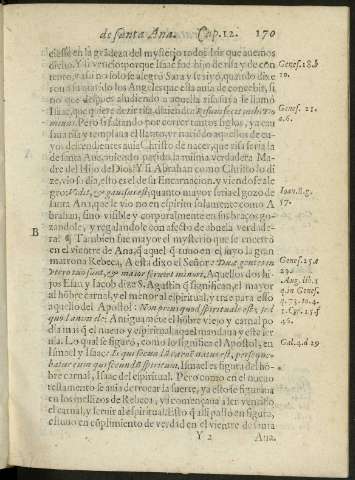 de santa Ana. Cap. 12. 170
diesse en la grādeza del mysterio todos los que auemos
dicho. Y si
porque Isaac fue hijo de risa y de con
tento, y assi no solo se alegrò Sara y se riyò, quando dixe
ron los Angeles que esta auia de concebir, si
no que despues aludiendo a aquella risa suya se llamò
Isaac, que quiere dezir risa, diziendo: Risum fecit mihi Do
minus. Pero
por correr tantos siglos, ya
risa y
el llanto, y
nacido aquellos de cu
yos descendientes auia Christo de nacer, que risa seria la
de santa Ana, auiendo parido la misma verdadera Ma
dre del Hijo de Dios? Y si Abrahan como Christo lo di
ze, vio su dia, esto es el de su Encarnacion, y viendose ale
grò: Vidit, & gauisus est: quanto mayor seria el gozo de
santa Ana, que le vio no en espiritu solamente como A
brahan, sino visible y corporalmente en sus braços, go-
zandole, y regalandole con afecto de abuela verdade-
ra? ¶ Tambien fue mayor el mysterio que se encerrò
en el vientre de Ana, q̄ aquel q̄ tuuo en el suyo la gran
matrona Rebeca. A esta dixo el Señor: Duæ gentes in
vtero tuo sunt, & maior seruiet minori. Aquellos dos hi-
jos Esau y Iacob dize S. Agustin q̄ significan, el mayor
al hōbre carnal, y el menor al espiritual, y trae para esto
aquello del Apostol: Non prius quod spirituale est, sed
quod animale. Antiguamēte el hōbre viejo y carnal po
dia mas q̄ el nueuo y espiritual, aquel mandaua y este ser
uia. Lo qual se figurò, como lo significa el Apostol, en
Ismael y Isaac: Is qui secundū carnē natus est, perseque-
batur eum qui secundū spiritum. Ismael es figura del hō-
bre carnal, Isaac del espiritual. Pero como en el nueuo
testamento se auia de trocar la suerte, ya esto se figuraua
en los mellizos de Rebeca, y a començaua a ser vencido
el carnal, y seruir al espiritual. Esto q̄ alli passò en figura,
estuuo en cūplimiento de verdad en el vientre de santa
Y 2 Ana.
Genes. 18. b
10.
Genes. 21.
a. 6.
Ioan. 8. g.
57.
B
Genes. 25. d
23.
Aug. lib. 1
q. in Genes.
q. 73. 10. 4.
1. Cor. 15. f
46.
Gal. 4. d 29